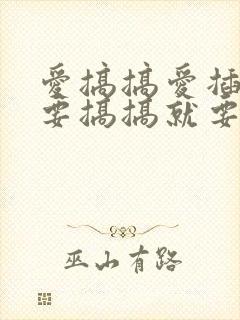 愛搞搞愛插
要搞搞就要
巫山有路